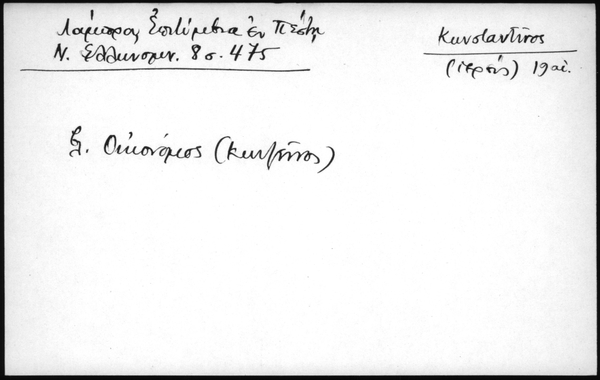 Λάμπρος, Ἐπιτύμβια ἐν Πέστῃ
Ν. Ἑλληνομν. 8 σ. 475
Κωνσταντῖνος
(ἱερεύς) 19 αἰ.
Οἰκονόμος (Κωνζῖνος)